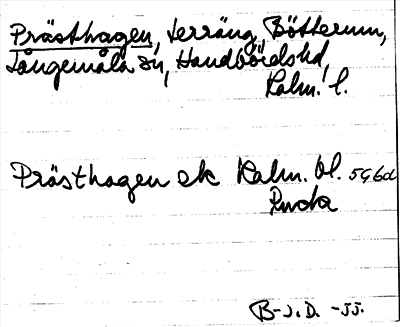 Prästhagen, terräng, Bötterum,
Långemåla sn, Handbördshd,
Kalm. l.
Prästhagen ek Kalm. bl. 5G6d
Ruda
B-J. D. -55.